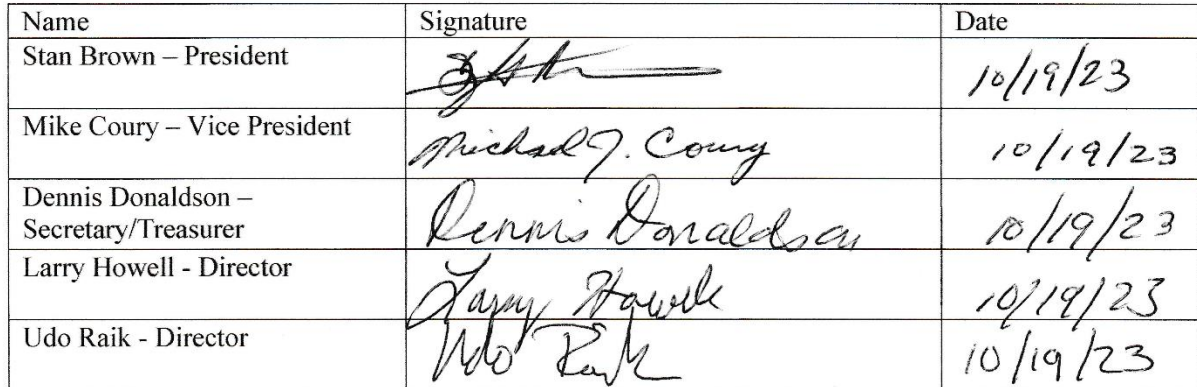 Name Signature Date
Stan Brown – President 10/19/23
Mike Coury – Vice President Michael J. Coury 10/19/23
Dennis Donaldson –
Secretary/Treasurer Dennis Donaldson 10/19/23
Larry Howell - Director Larry Howell 10/19/23
Udo Raik - Director Udo Raik 10/19/23